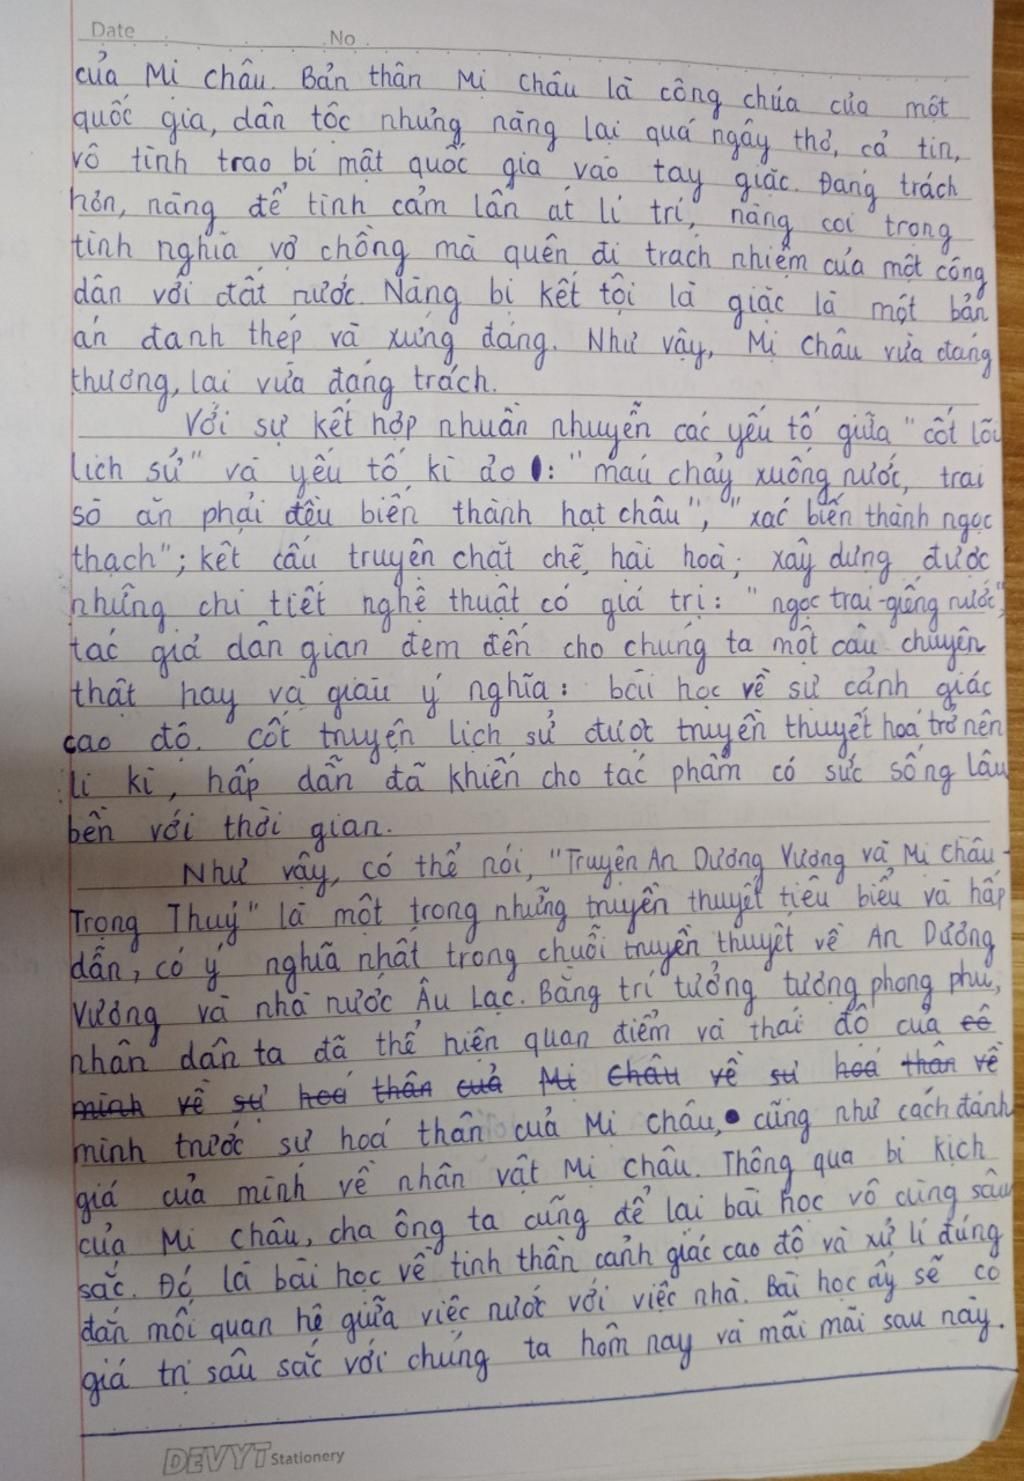 Date No
của Mị Châu. Bản thân Mị Châu là công chúa của một
quốc gia, dân tộc nhưng nàng lại quá ngây thơ, cả tin,
vô tình trao bí mật quốc gia vào tay giặc. Đáng trách
hơn, nàng để tình cảm lấn át lí trí, nàng coi trọng
tình nghĩa vợ chồng mà quên đi trách nhiệm của một công
dân với đất nước. Nàng bị kết tội là giặc là một bản
án đanh thép và xứng đáng. Như vậy, Mị Châu vừa đáng
thương, lại vừa đáng trách.
Với sự kết hợp nhuần nhuyễn các yếu tố giữa "cốt lõi
lịch sử" và yếu tố kì ảo : "máu chảy xuống nước, trai
sò ăn phải đều biến thành hạt châu", "xác biến thành ngọc
thạch"; kết cấu truyện chặt chẽ, hài hoà; xây dựng được
những chi tiết nghệ thuật có giá trị: "ngọc trai-giếng nước",
tác giả dân gian đem đến cho chúng ta một câu chuyện
thật hay và giàu ý nghĩa: bài học về sự cảnh giác
cao độ. Cốt truyện lịch sử được truyền thuyết hoá trở nên
li kì, hấp dẫn đã khiến cho tác phẩm có sức sống lâu
bền với thời gian.
Như vậy, có thể nói, "Truyện An Dương Vương và Mị Châu -
Trọng Thuỷ" là một trong những truyền thuyết tiêu biểu và hấp
dẫn, có ý nghĩa nhất trong chuỗi truyền thuyết về An Dương
Vương và nhà nước Âu Lạc. Bằng trí tưởng tượng phong phú,
nhân dân ta đã thể hiện quan điểm và thái độ của
mình về sự hoá thân của Mị Châu về sự hoá thân về
mình trước sự hoá thân của Mị Châu, cũng như cách đánh
giá của mình về nhân vật Mị Châu. Thông qua bi kịch
của Mị Châu, cha ông ta cũng để lại bài học vô cùng sâu
sắc. Đó là bài học về tinh thần cảnh giác cao độ và xử lí đúng
đắn mối quan hệ giữa việc nước với việc nhà. Bài học ấy sẽ có
giá trị sâu sắc với chúng ta hôm nay và mãi mãi sau này.
DEVYT Stationery